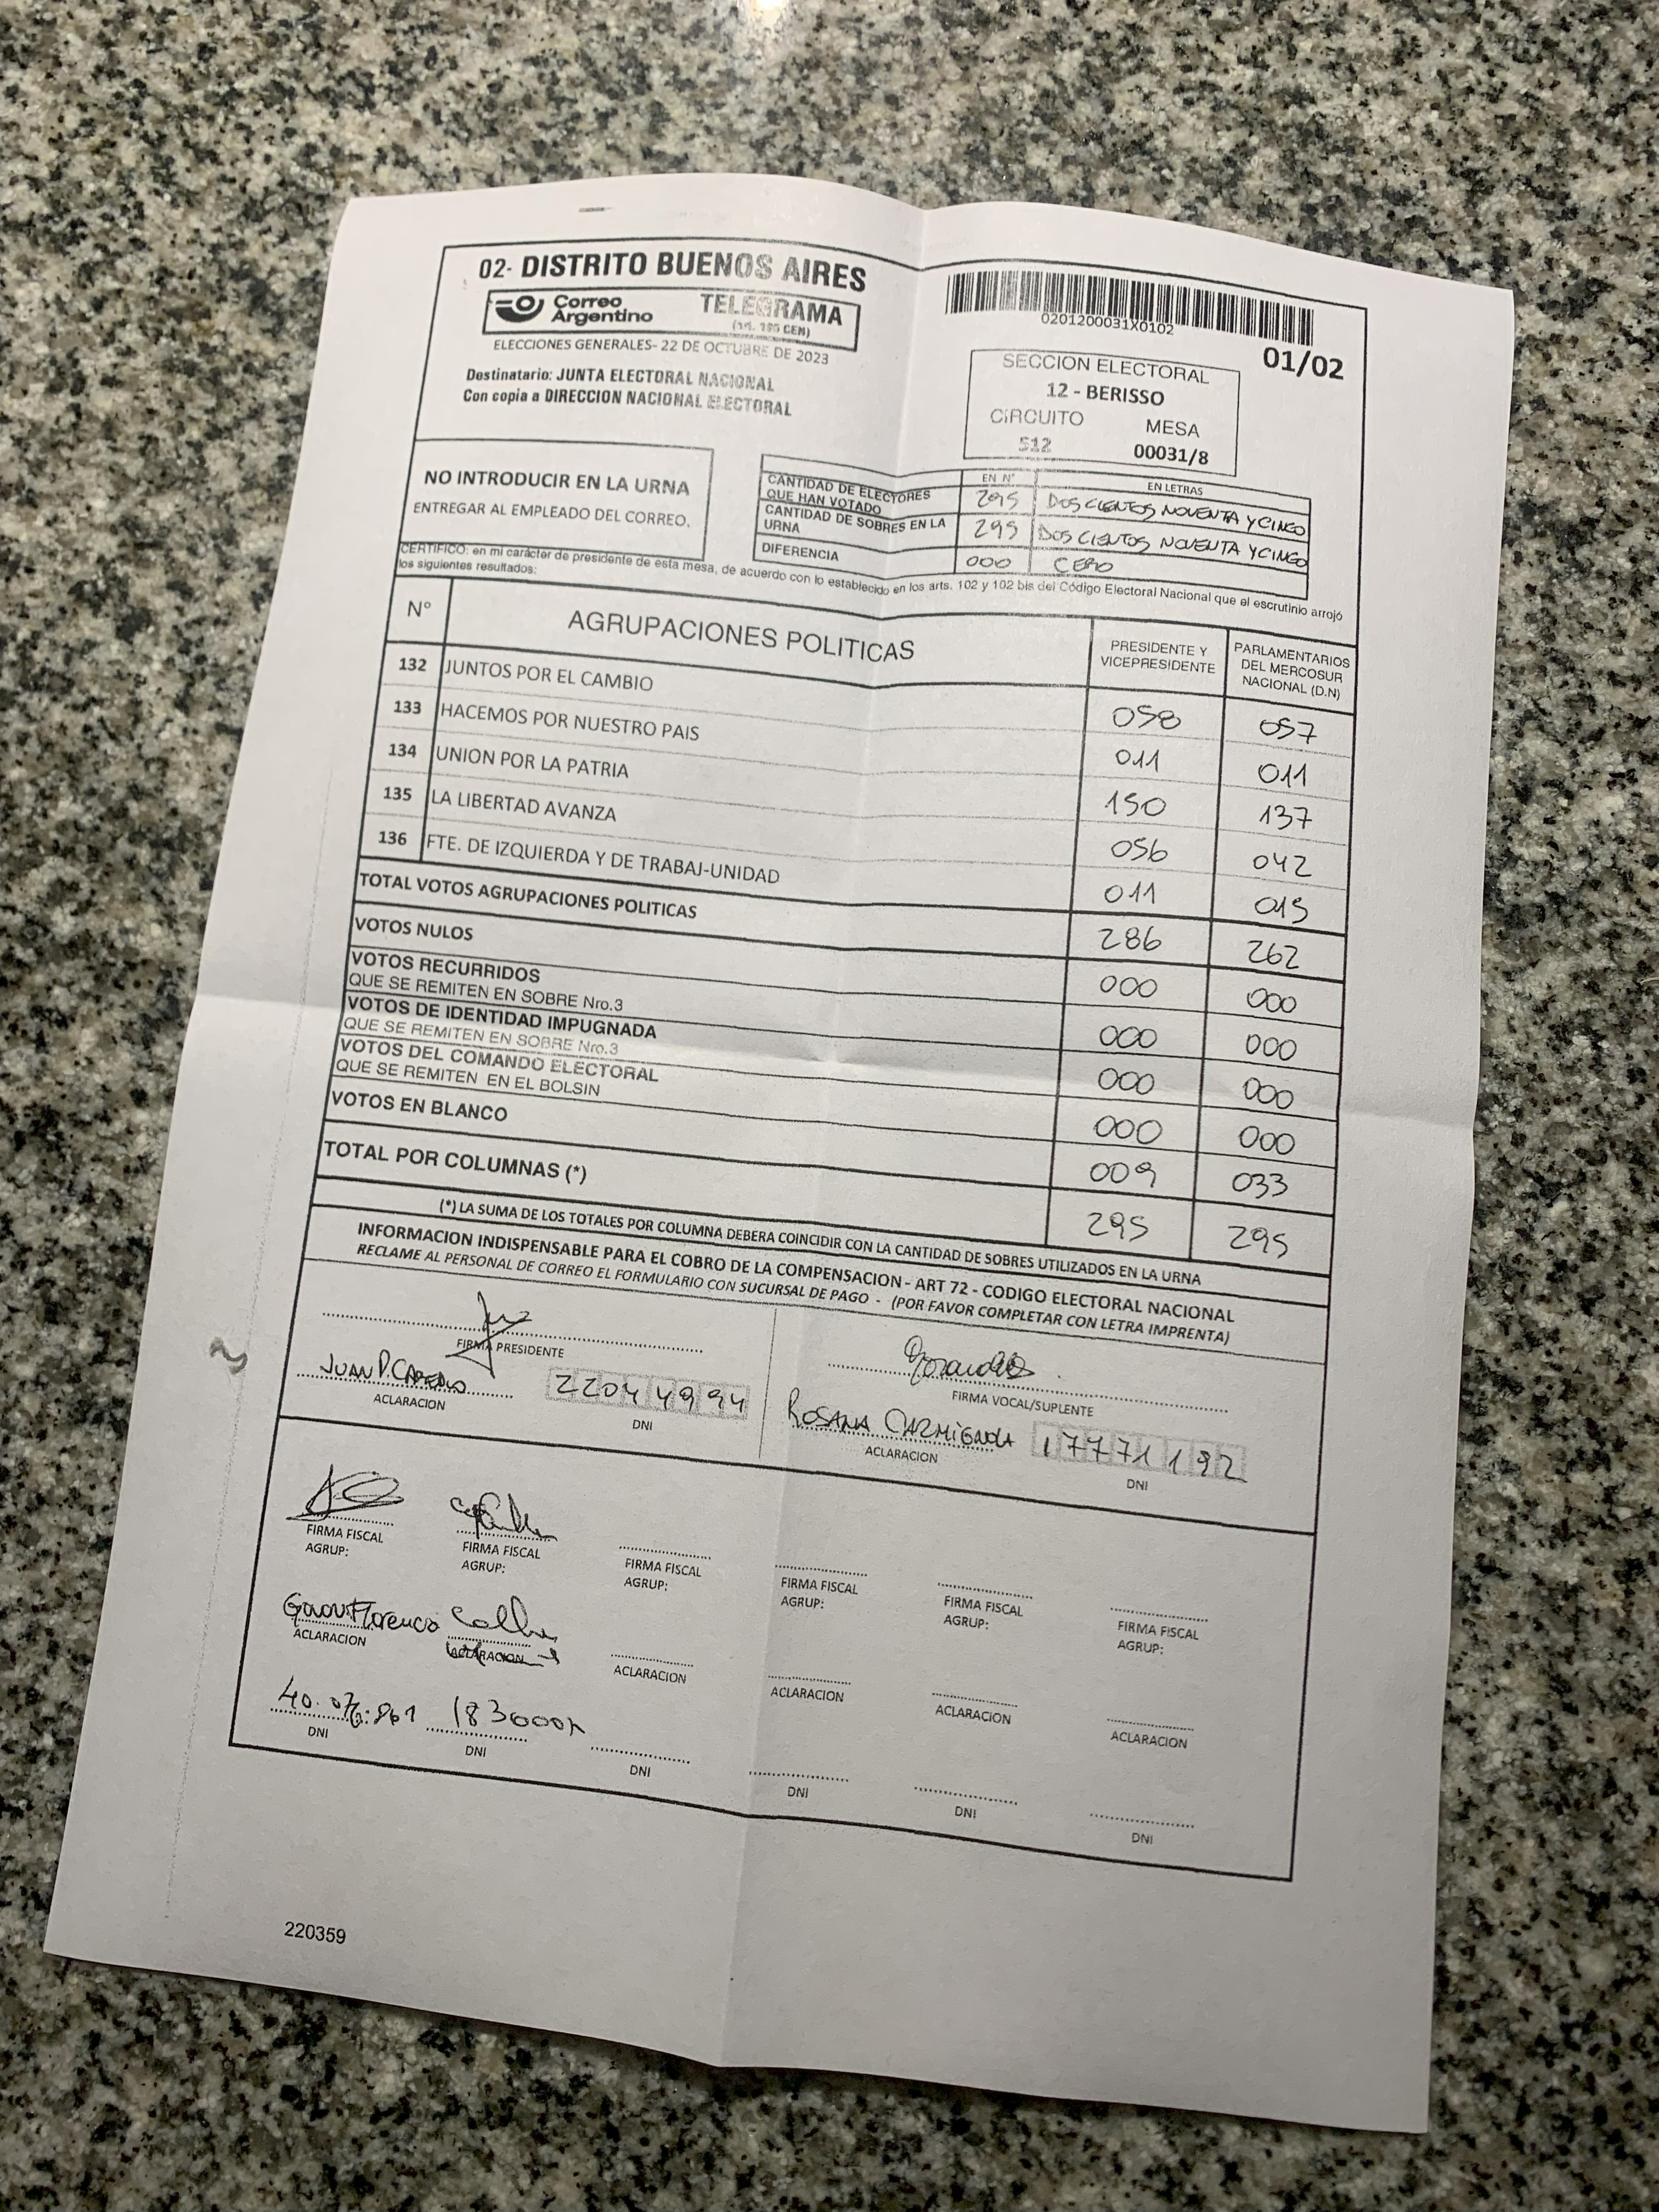 02- DISTRITO BUENOS AIRES
Correo Argentino
TELEGRAMA
(Art. 105 CEN)
ELECCIONES GENERALES- 22 DE OCTUBRE DE 2023
Destinatario: JUNTA ELECTORAL NACIONAL
Con copia a DIRECCION NACIONAL ELECTORAL
0201200031X0102
01/02
SECCION ELECTORAL
12 - BERISSO
CIRCUITO MESA
512 00031/8
NO INTRODUCIR EN LA URNA
ENTREGAR AL EMPLEADO DEL CORREO.
EN N° EN LETRAS
CANTIDAD DE ELECTORES QUE HAN VOTADO 295 DOSCIENTOS NOVENTA Y CINCO
CANTIDAD DE SOBRES EN LA URNA 295 DOSCIENTOS NOVENTA Y CINCO
DIFERENCIA 000 CERO
CERTIFICO: en mi carácter de presidente de esta mesa, de acuerdo con lo establecido en los arts. 102 y 102 bis del Código Electoral Nacional que el escrutinio arrojó
los siguientes resultados:
N° AGRUPACIONES POLITICAS PRESIDENTE Y VICEPRESIDENTE PARLAMENTARIOS DEL MERCOSUR NACIONAL (D.N)
132 JUNTOS POR EL CAMBIO 058 057
133 HACEMOS POR NUESTRO PAIS 011 011
134 UNION POR LA PATRIA 150 137
135 LA LIBERTAD AVANZA 056 042
136 FTE. DE IZQUIERDA Y DE TRABAJ-UNIDAD 011 015
TOTAL VOTOS AGRUPACIONES POLITICAS 286 262
VOTOS NULOS 000 000
VOTOS RECURRIDOS
QUE SE REMITEN EN SOBRE Nro.3 000 000
VOTOS DE IDENTIDAD IMPUGNADA
QUE SE REMITEN EN SOBRE Nro.3 000 000
VOTOS DEL COMANDO ELECTORAL
QUE SE REMITEN EN EL BOLSIN 000 000
VOTOS EN BLANCO 009 033
TOTAL POR COLUMNAS (*) 295 295
(*) LA SUMA DE LOS TOTALES POR COLUMNA DEBERA COINCIDIR CON LA CANTIDAD DE SOBRES UTILIZADOS EN LA URNA
INFORMACION INDISPENSABLE PARA EL COBRO DE LA COMPENSACION - ART 72 - CODIGO ELECTORAL NACIONAL
RECLAME AL PERSONAL DE CORREO EL FORMULARIO CON SUCURSAL DE PAGO - (POR FAVOR COMPLETAR CON LETRA IMPRENTA)
FIRMA PRESIDENTE
JUAN P. 22044994
ACLARACION DNI
FIRMA VOCAL/SUPLENTE
ROSANA CARMIGNOLA 17771192
ACLARACION DNI
FIRMA FISCAL FIRMA FISCAL FIRMA FISCAL FIRMA FISCAL FIRMA FISCAL FIRMA FISCAL
AGRUP: AGRUP: AGRUP: AGRUP: AGRUP: AGRUP:
Florencia
ACLARACION ACLARACION ACLARACION ACLARACION ACLARACION ACLARACION
DNI DNI DNI DNI DNI DNI
220359